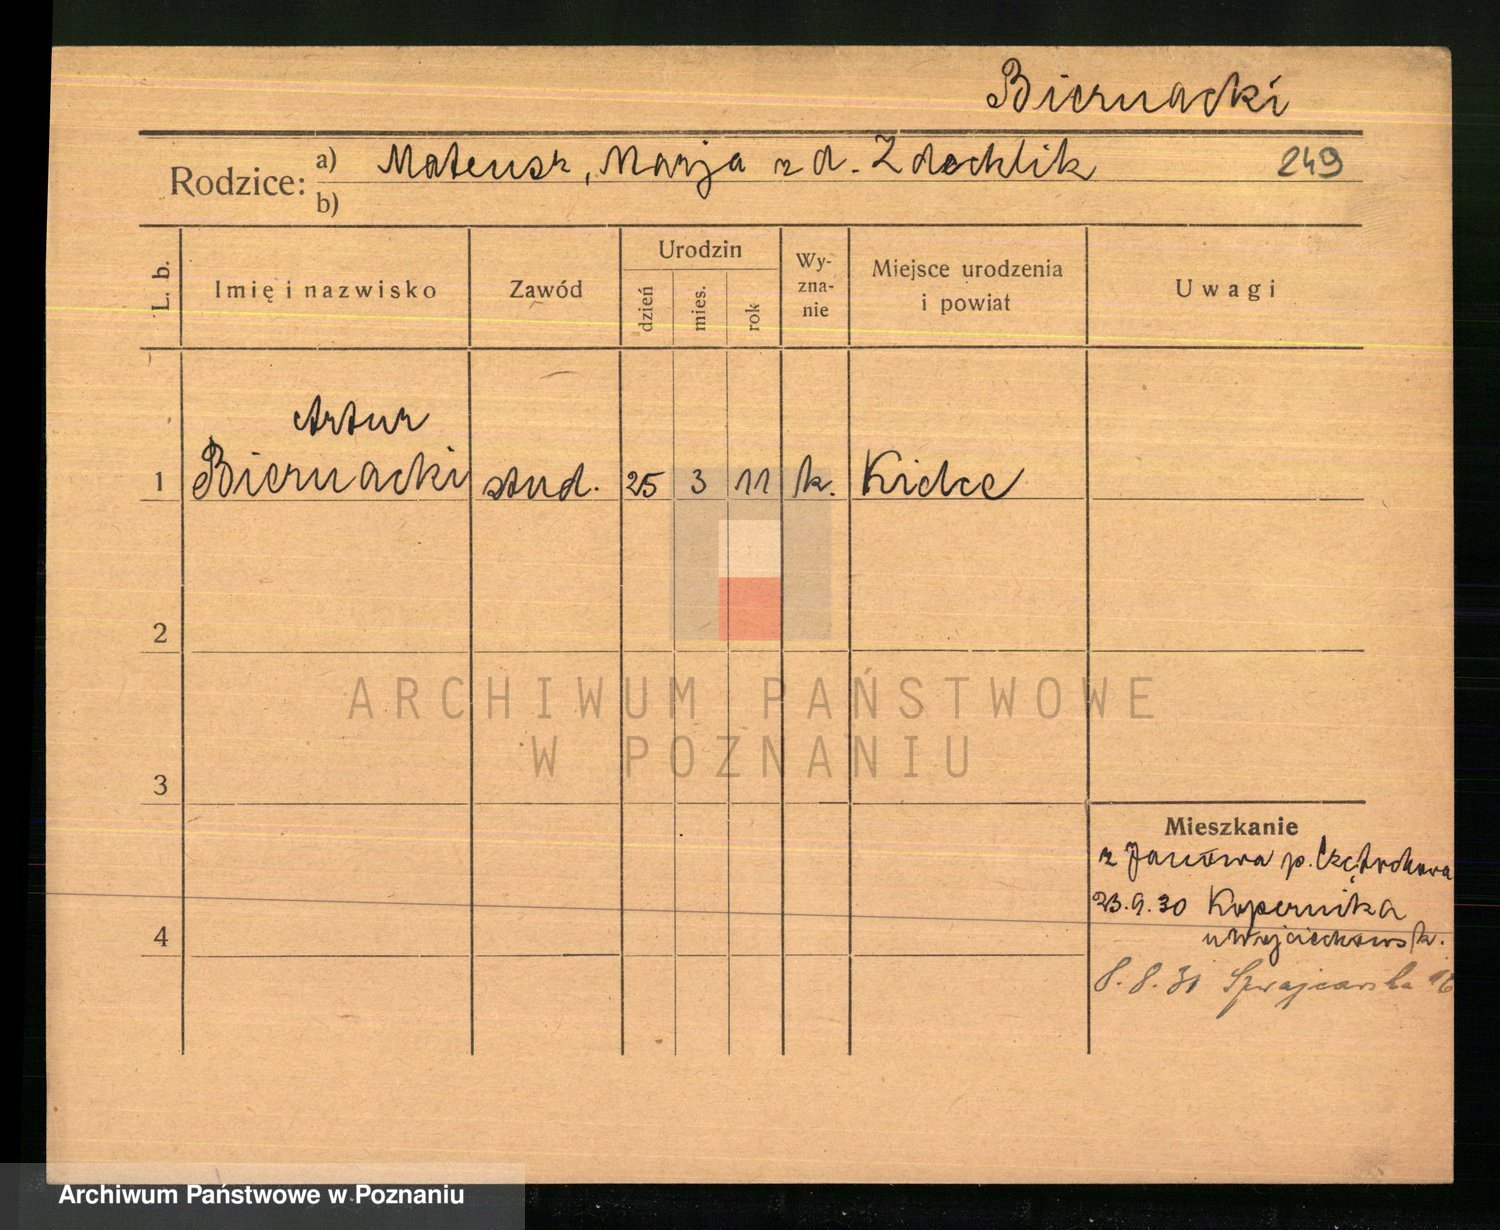 Biernacki
Rodzice: a) Mateusz, Marja z d. Zdechlik 249
b)
L. b. Imię i nazwisko Zawód Urodzin dzień mies. rok Wy-zna-nie Miejsce urodzenia i powiat Uwagi
Artur
1 Biernacki stud. 25 3 11 k. Kielce
2
ARCHIWUM PAŃSTWOWE
W POZNANIU
3
Mieszkanie
z Janowa p. Częstochowa
23.9.30 Kopernika
4
u Wojciechowsk.
8.8.31 Szwajcarska 16
Archiwum Państwowe w Poznaniu